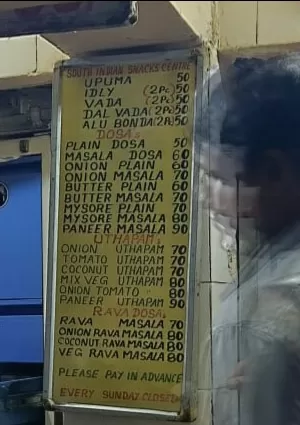 SOUTH INDIAN SNACKS CENTRE
UPUMA 50
IDLY (2Pc) 50
VADA (2Pc) 50
DAL VADA (2Pc) 50
ALU BONDA (2Pc) 50
DOSA:
PLAIN DOSA 50
MASALA DOSA 60
ONION PLAIN 60
ONION MASALA 70
BUTTER PLAIN 60
BUTTER MASALA 70
MYSORE PLAIN 70
MYSORE MASALA 80
PANEER MASALA 90
UTHAPAM:
ONION UTHAPAM 70
TOMATO UTHAPAM 70
COCONUT UTHAPAM 70
MIX VEG UTHAPAM 80
ONION TOMATO " 80
PANEER UTHAPAM 90
RAVA DOSA:
RAVA MASALA 70
ONION RAVA MASALA 80
COCONUT RAVA MASALA 80
VEG RAVA MASALA 80
PLEASE PAY IN ADVANCE
EVERY SUNDAY CLOSED